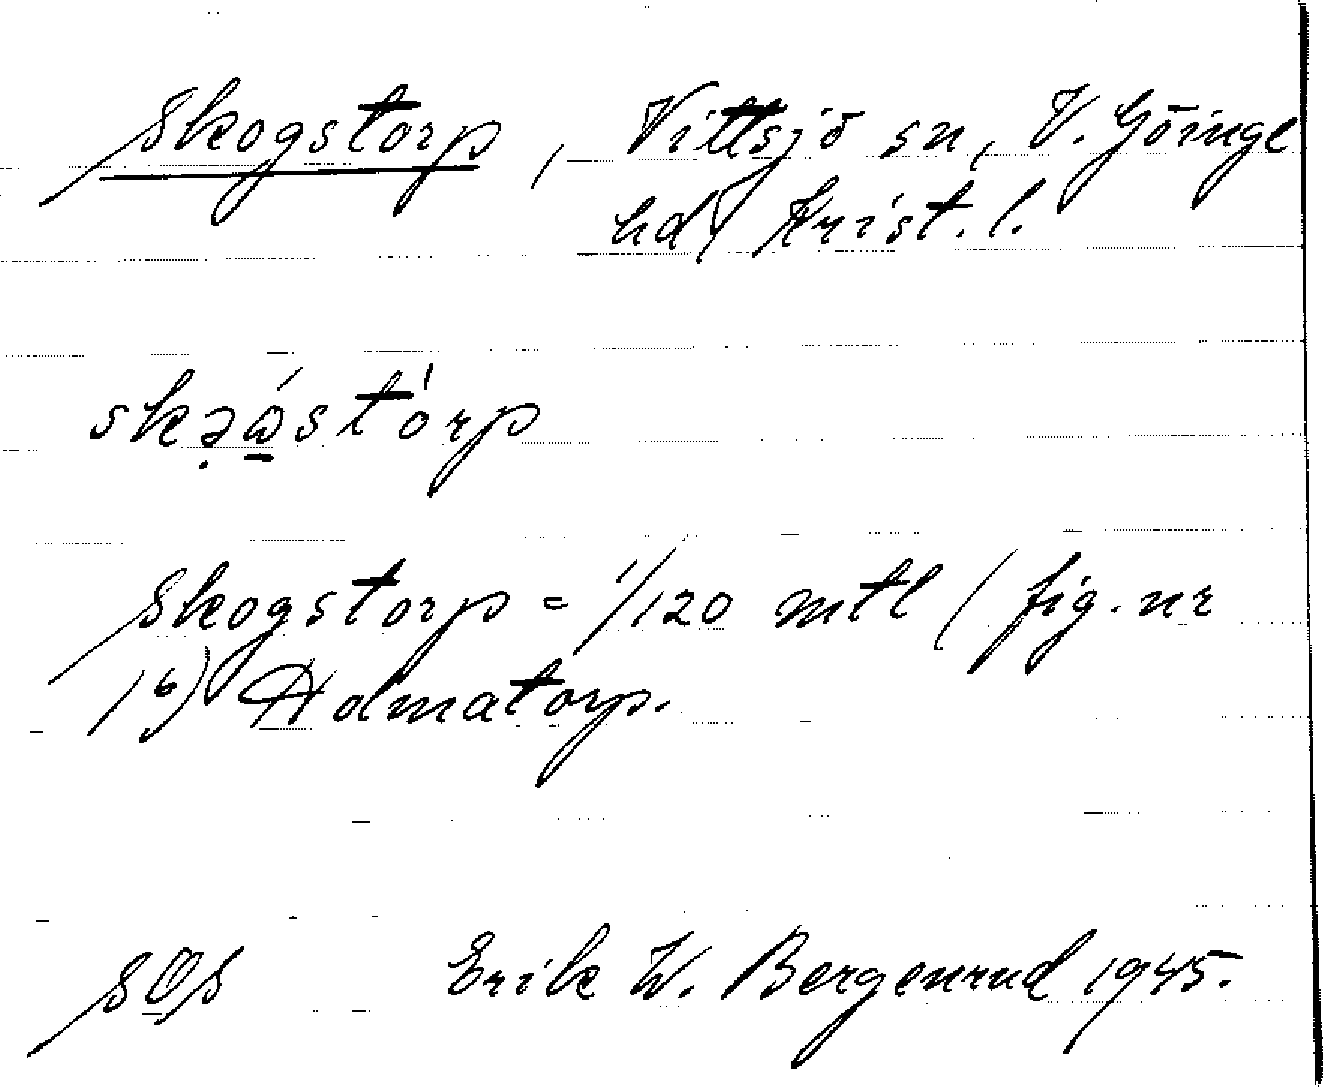 Skogstorp, Vittsjö sn, V. Göinge
hd, Krist. l.
skə̣ώ̲stórp
Skogstorp = 1/120 mtl (fig. nr
1⁶) Holmatorp.
SOS Erik W. Bergenrud 1945.